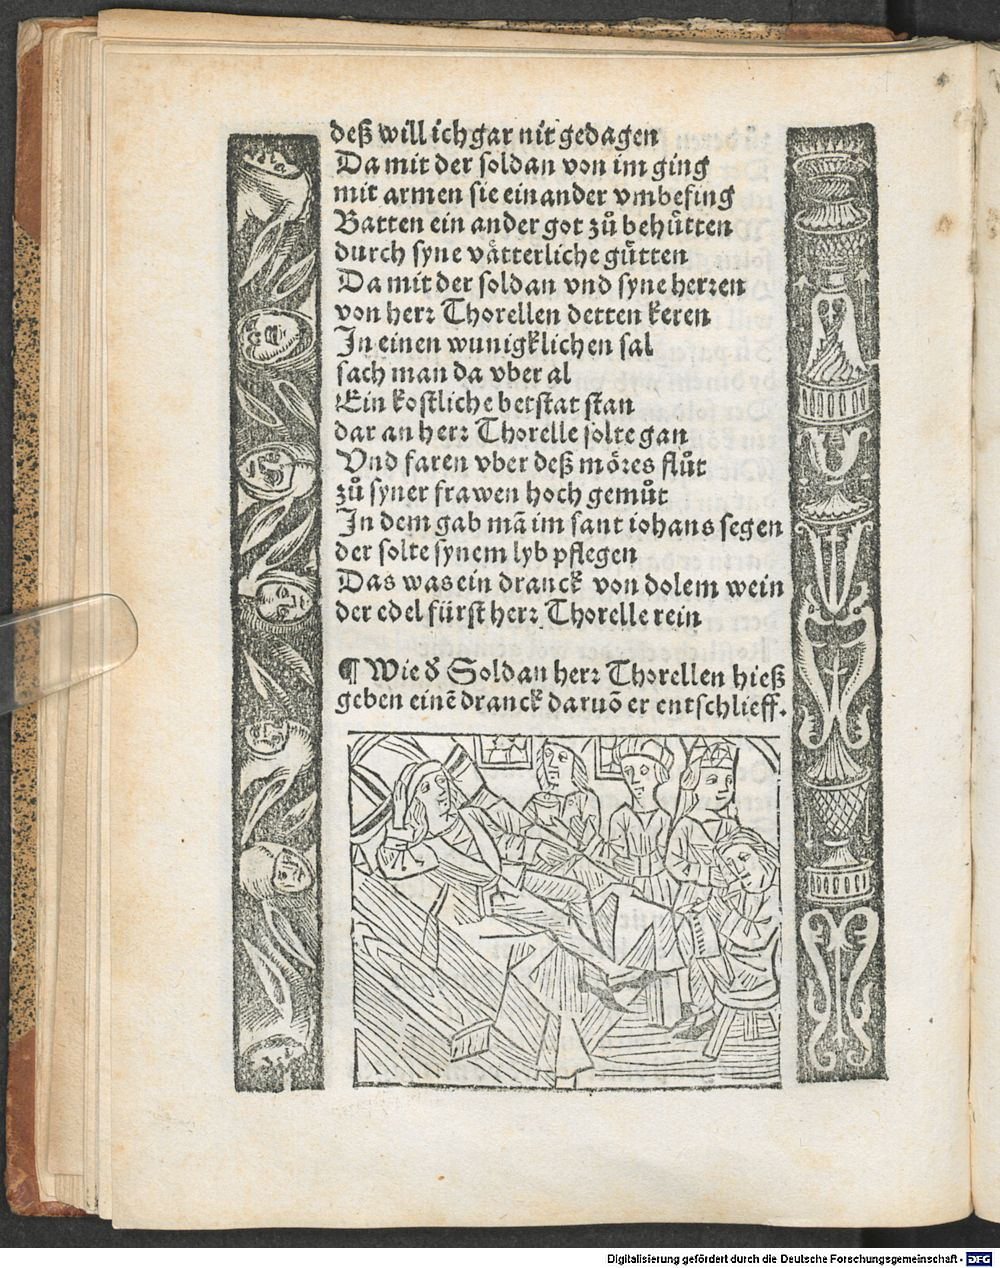 deß will ich gar nit gedagen
Da mit der soldan von im ging
mit armen sie einander vmbefing
Batten ein ander got zů behůtten
durch syne våtterliche gůtten
Da mit der soldan vnd syne herren
von herꝛ Thorellen detten keren
In einen wunigklichen sal
sach man da vber al
Ein kostliche betstat stan
dar an herꝛ Thorelle solte gan
Vnd faren vber deß möres flůt
zů syner frawen hoch gemůt
In dem gab mā im sant iohans segen
der solte synem lyb pflegen
Das was ein dranck von dolem wein
der edel fürst herꝛ Thorelle rein
¶ Wie δ Soldan herꝛ Thorellen hieß
geben einē dranck daruō er entschlieff.
Digitalisierung gefördert durch die Deutsche Forschungsgemeinschaft - DFG